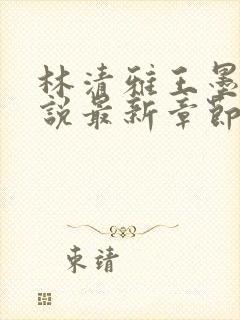 林清雅王墨
說最新章節
東靖